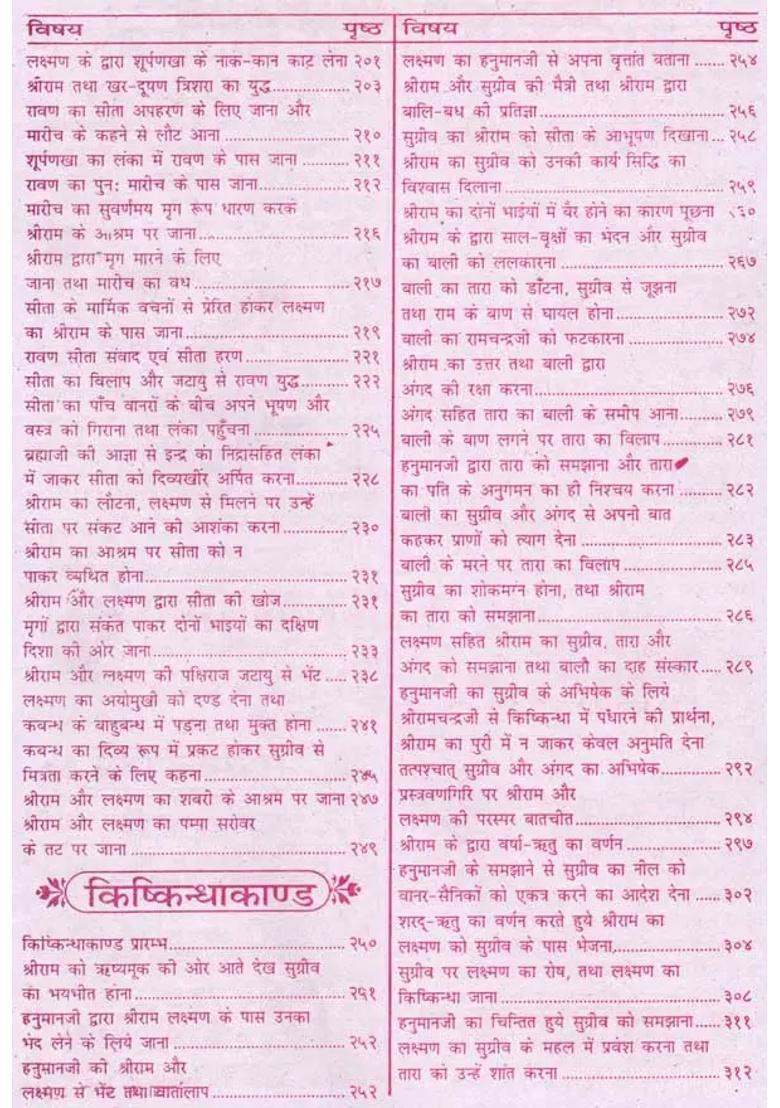 विषय पृष्ठ
लक्ष्मण के द्वारा शूर्पणखा के नाक-कान काट लेना २०१
श्रीराम तथा खर-दूषण त्रिशरा का युद्ध.................. २०३
रावण का सीता अपहरण के लिए जाना और
मारीच के कहने से लौट आना ........................ २१०
शूर्पणखा का लंका में रावण के पास जाना ............ २११
रावण का पुनः मारीच के पास जाना................... २१२
मारीच का सुवर्णमय मृग रूप धारण करके
श्रीराम के आश्रम पर जाना............................. २१६
श्रीराम द्वारा मृग मारने के लिए
जाना तथा मारीच का वध.............................. २१७
सीता के मार्मिक वचनों से प्रेरित होकर लक्ष्मण
का श्रीराम के पास जाना............................... २१९
रावण सीता संवाद एवं सीता हरण.................... २२१
सीता का विलाप और जटायु से रावण युद्ध........... २२२
सीता का पाँच वानरों के बीच अपने भूषण और
वस्त्र को गिराना तथा लंका पहुँचना .................. २२५
ब्रह्माजी की आज्ञा से इन्द्र का निद्रासहित लंका
में जाकर सीता को दिव्यखीर अर्पित करना............ २२८
श्रीराम का लौटना, लक्ष्मण से मिलने पर उन्हें
सीता पर संकट आने की आशंका करना ............... २३०
श्रीराम का आश्रम पर सीता को न
पाकर व्यथित होना...................................... २३१
श्रीराम और लक्ष्मण द्वारा सीता की खोज.............. २३१
मृगों द्वारा संकेत पाकर दोनों भाइयों का दक्षिण
दिशा की ओर जाना..................................... २३३
श्रीराम और लक्ष्मण की पक्षिराज जटायु से भेंट ..... २३८
लक्ष्मण का अयोमुखी को दण्ड देना तथा
कबन्ध के बाहुबन्ध में पड़ना तथा मुक्त होना ....... २४१
कबन्ध का दिव्य रूप में प्रकट होकर सुग्रीव से
मित्रता करने के लिए कहना........................... २४५
श्रीराम और लक्ष्मण का शबरी के आश्रम पर जाना २४७
श्रीराम और लक्ष्मण का पम्पा सरोवर
के तट पर जाना ........................................ २४९
किष्किन्धाकाण्ड
किष्किन्धाकाण्ड प्रारम्भ................................. २५०
श्रीराम को ऋष्यमूक की ओर आते देख सुग्रीव
का भयभीत होना........................................ २५१
हनुमानजी द्वारा श्रीराम लक्ष्मण के पास उनका
भेद लेने के लिये जाना ................................ २५२
हनुमानजी की श्रीराम और
लक्ष्मण से भेंट तथा वार्तालाप......................... २५२
विषय पृष्ठ
लक्ष्मण का हनुमानजी से अपना वृत्तांत बताना ....... २५४
श्रीराम और सुग्रीव की मैत्री तथा श्रीराम द्वारा
बालि-बध की प्रतिज्ञा................................... २५६
सुग्रीव का श्रीराम को सीता के आभूषण दिखाना... २५८
श्रीराम का सुग्रीव को उनकी कार्य सिद्धि का
विश्वास दिलाना ......................................... २५९
श्रीराम का दोनों भाईयों में बैर होने का कारण पूछना २६०
श्रीराम के द्वारा साल-वृक्षों का भेदन और सुग्रीव
का बाली को ललकारना ............................... २६७
बाली का तारा को डाँटना, सुग्रीव से जूझना
तथा राम के बाण से घायल होना..................... २७२
बाली का रामचन्द्रजी को फटकारना .................. २७४
श्रीराम का उत्तर तथा बाली द्वारा
अंगद की रक्षा करना................................... २७६
अंगद सहित तारा का बाली के समीप आना......... २७९
बाली के बाण लगने पर तारा का विलाप............. २८१
हनुमानजी द्वारा तारा को समझाना और तारा
का पति के अनुगमन का ही निश्चय करना .......... २८२
बाली का सुग्रीव और अंगद से अपनी बात
कहकर प्राणों को त्याग देना .......................... २८३
बाली के मरने पर तारा का विलाप ................... २८५
सुग्रीव का शोकमग्न होना, तथा श्रीराम
का तारा को समझाना.................................. २८६
लक्ष्मण सहित श्रीराम का सुग्रीव, तारा और
अंगद को समझाना तथा बाली का दाह संस्कार..... २८९
हनुमानजी का सुग्रीव के अभिषेक के लिये
श्रीरामचन्द्रजी से किष्किन्धा में पधारने की प्रार्थना,
श्रीराम का पुरी में न जाकर केवल अनुमति देना
तत्पश्चात् सुग्रीव और अंगद का अभिषेक............. २९२
प्रस्त्रवणगिरि पर श्रीराम और
लक्ष्मण की परस्पर बातचीत........................... २९४
श्रीराम के द्वारा वर्षा-ऋतु का वर्णन ................. २९७
हनुमानजी के समझाने से सुग्रीव का नील को
वानर-सैनिकों को एकत्र करने का आदेश देना ...... ३०२
शरद्-ऋतु का वर्णन करते हुये श्रीराम का
लक्ष्मण को सुग्रीव के पास भेजना.................... ३०४
सुग्रीव पर लक्ष्मण का रोष, तथा लक्ष्मण का
किष्किन्धा जाना ........................................ ३०८
हनुमानजी का चिन्तित हुये सुग्रीव को समझाना..... ३११
लक्ष्मण का सुग्रीव के महल में प्रवेश करना तथा
तारा का उन्हें शांत करना ............................. ३१२